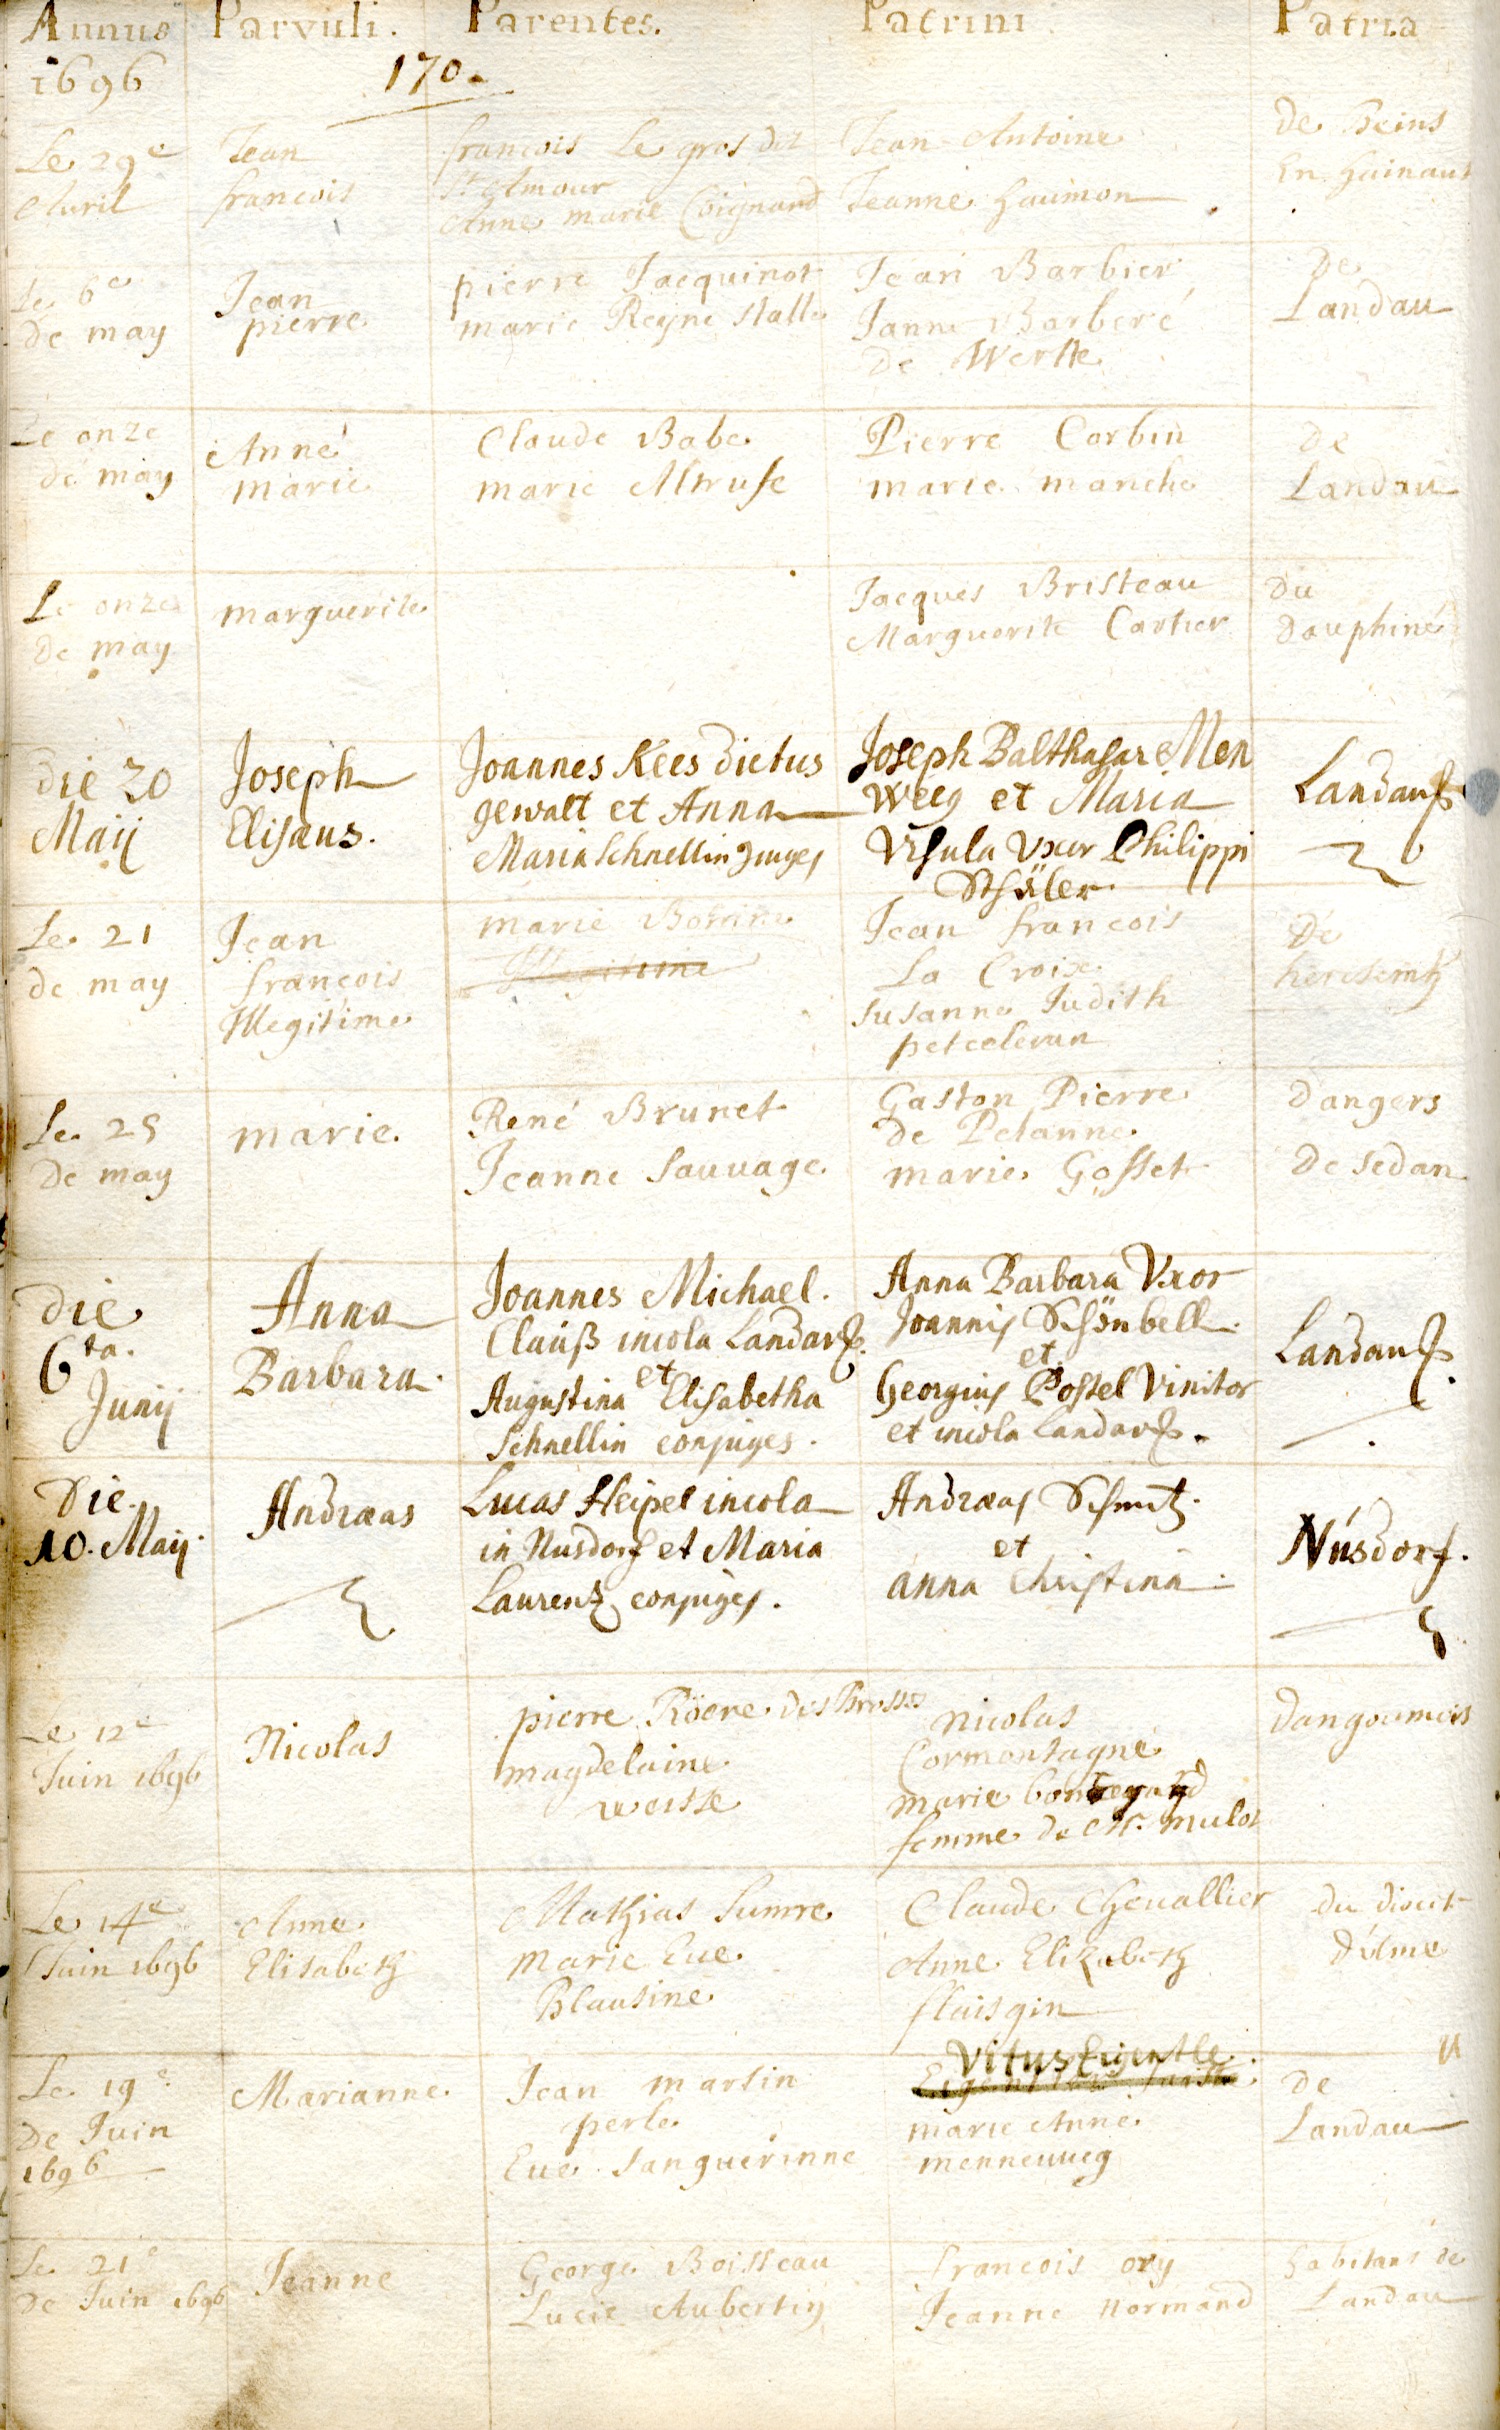 Annus Parvuli. Parentes. Patrini Patria
1696
170.
Le 29e
Avril
Jean
francois
francois Le gros dit
St Amour
Anne marie Coignard
Jean Antoine
Jeanne haumon
de Beins
En hainaut
Le 6e
de may
Jean
pierre
pierre Jacquinot
marie Reyne Stalle
Jean Barbier
Janne Barberé
de Werste
De
Landau
Le onze
de may
Anne
marie
Claude Babe
marie
Pierre Corbin
marie manche
de
Landau
Le onze
de may
marguerite
Jacques Bristeau
Marguerite Cartier
Du
Dauphiné
die 20
Maij
Joseph
Elisaus.
Joannes Kees dictus
gewalt et Anna
Maria Schnellin
Joseph Balthasar Men
Weeg et Maria
Vrsula Vxor Philippi
Schüler
Landau
Le 21
de may
Jean
francois
Illegitime
marie
Illegitime
Jean francois
La Croix
Susanne Judith
petceleran
De
Le 25
De may
marie.
René Brunet
Jeanne Sauvage
Gaston Pierre
de Pelanne
marie Gosset
Dangers
De Sedan
Die
6ta.
Junij
Anna
Barbara.
Joannes Michael.
Clauß incola Landau
et
Augustina Elisabetha
Schnellin conjuges.
Anna Barbara Vxor
Joannis Schönbell.
et
Georgius Postel Vinitor
et incola Landau
Landau
Die
10. Maij.
Andraeas
Lucas Heipel incola
in Nusdorf et Maria
Laurentz conjuges.
Andraeas Schmitz.
et
anna Christina.
Nusdorf.
Le 12e
Juin 1696
Nicolas
pierre Röere des Brosses
magdelaine
weisse
Nicolas
Cormontagne
marie
femme de Mr. mulot
Dangoumois
Le 14e
Juin 1696
Anne
Elisabeth
Mathias Sumre
Marie Eue
Blausine
Claude Cheuallier
Anne Elizabeth
flaisgin
du
Dulme
Le 19e
De Juin
1696
Marianne.
Jean martin
perle
Eue Sanguerinne
Vitus Eigentle
marie Anne
menneuueg
De
Landau
Le 21e
De Juin 1696
Jeanne
George Boisseau
Lucie Aubertin
francois ory
Jeanne Normand
habitans de
Landau